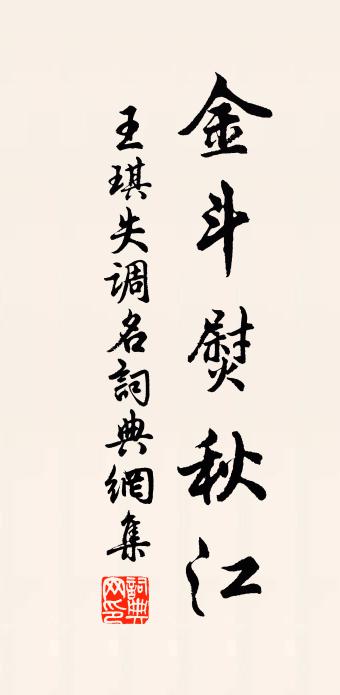 金斗熨秋江
王琪失调名詞典網集
詞典网印